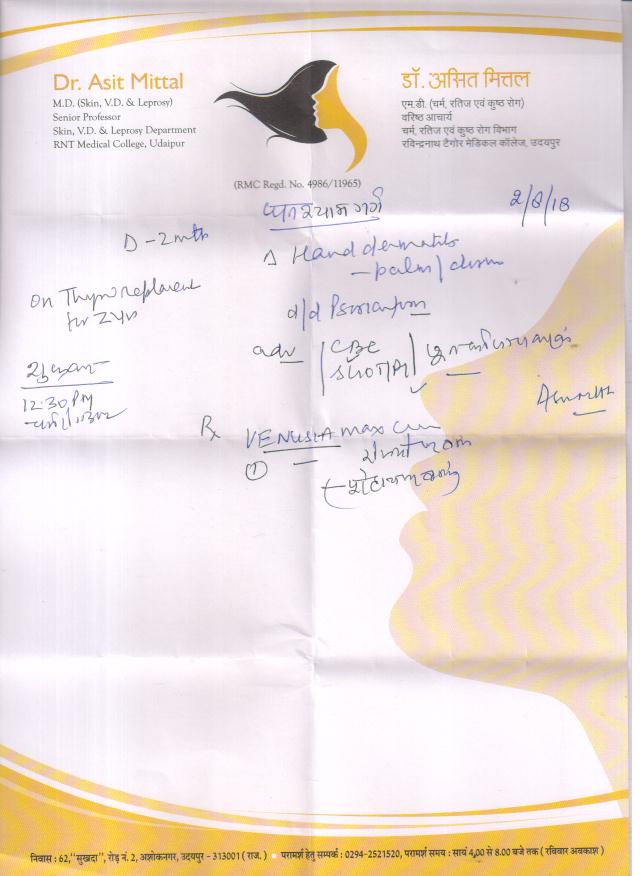 Dr. Asit Mittal
M.D. (Skin, V.D. & Leprosy)
Senior Professor
Skin, V.D. & Leprosy Department
RNT Medical College, Udaipur
डॉ. असित मित्तल
एम.डी. (चर्म, रतिज एवं कुष्ठ रोग)
वरिष्ठ आचार्य
चर्म, रतिज एवं कुष्ठ रोग विभाग
रविन्द्रनाथ टैगोर मेडिकल कॉलेज, उदयपुर
(RMC Regd. No. 4986/11965)
2/8/18
D - 2 mth
Δ Hand dermatitis
- palm/
On Thyro replacement
for 2 yr
d/d Psoriasis
adv CBC
SGOT/PT
शुक्रवार
12:30 PM
Rx VENUSIA max
①
निवास : 62,"सुखदा", रोड़ नं. 2, अशोकनगर, उदयपुर - 313001 ( राज. ) • परामर्श हेतु सम्पर्क : 0294-2521520, परामर्श समय : सायं 4.00 से 8.00 बजे तक ( रविवार अवकाश )